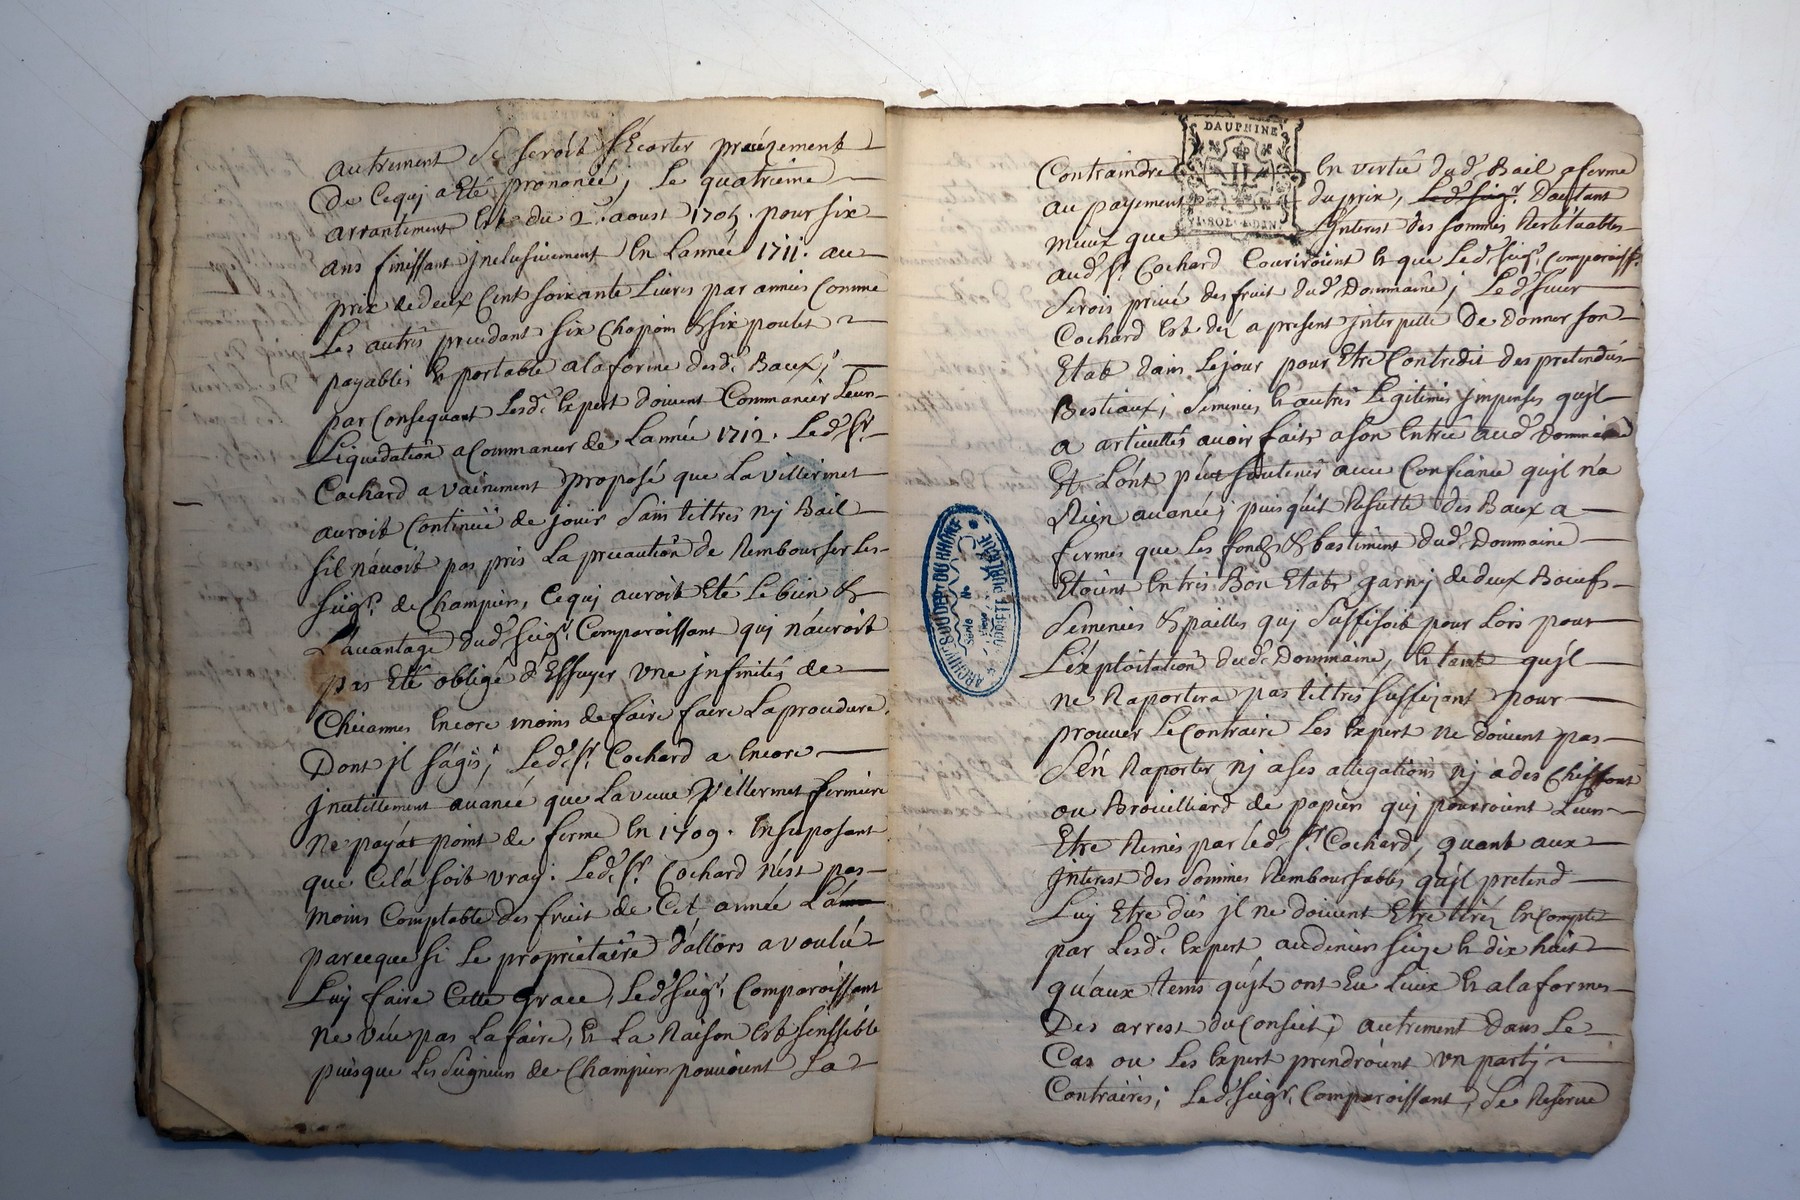 autrement Se Seroit S'Ecarter preçizement
De Cequj a Eté prononcé, Le quatriéme
arrantement Est du 2e. aoust 1705. pour six
ans finissant jnclusivement En Lannée 1711. au
prix de deux Cent soixante Livres par années Comme
Les autres precedant six Chapons & six poulets
payables Et portable a la forme desd. Baux;
par Consequant Lesd. Expert doivent Commancér Leur
Liquidation a Commancer de Lannée 1712. Led. Sr.
Cochard a vainement proposé que La villermet
auroit Continué de jouir Sans tittres nj Bail
sil n'avoit pas pris La precaution de Rembourser Les
Seigrs. de Champier, Cequj auroit Eté Le bien &
L'avantage dud. Seigr. Comparoissant quj n'auroit
pas Eté obligé d'Essuyer une jnfinités de
Chicannes Encore moins de faire faire La procedure,
Dont jl s'agis; Led. Sr. Cochard a Encore
jnutillement avancé que La veuve Villermet fermiere
ne payat point de ferme En 1709. En suposant
que Cela soit vray. Led. Sr. Cochard n'est pas
moins Comptable des fruit de Cet année La
parceque si Le proprietaire d'allors a voulu
Luj faire Cette Grace, Led. Seigr. Comparoissant
ne veu pas La faire, Et La Raison Est senssible
puisque Les Seigneurs de Champier pouvoient La
DAUPHINE
Contraindre En vertu dud. Bail a ferme
au payement du prix, Led. Seigr. D'autant
mieux que L'jnterest des sommes Restituables
aud. Sr. Cochard Couriroient Et que Led. Seigr. Comparoiss.
Serois privé des fruit dud. Dommaine; Led. Sieur
Cochard Est dez a present jnterpellé De donner son
Etat dans Le jour pour Etre Contredit des pretendus
Bestiaux, Semences Et autres Legitimes jmpenses qujl
a articullés avoir faits a son Entrée aud. Dommaine
Et L'ont peut soutenir avec Confiance qujl n'a
Rien avancé; puisqu'il Resulte des Baux a
fermes que Les fonds & bastiment dud. Dommaine
Etoient En tres Bon Etat garnj de deux Boeufs
Semences & pailles quj Suffisoit pour Lors pour
L'exploitation dud. Dommaine, Et tant qujl
ne Raportera pas tittres suffizant pour
prouver Le Contraire Les Expert ne doivent pas
S'en Raporter nj a ses allegations nj a des Chiffons
ou Brouilliard de papier quj pourroient Leur
Etre Remis par Led. Sr. Cochard, quant aux
jnterest des Sommes Remboursables qujl pretend
Luj Etre dus jl ne doivent Etre tirez En Compte
par Lesd. Expert au denier seize Et dix huit
qu'aux tems qujls ont Eu Lieux Et a la formes
Des arrest du Conseil; autrement dans Le
Cas ou Les Expert prendroient un partj
Contraires; Led. Seigr. Comparoissant, Se Reserve